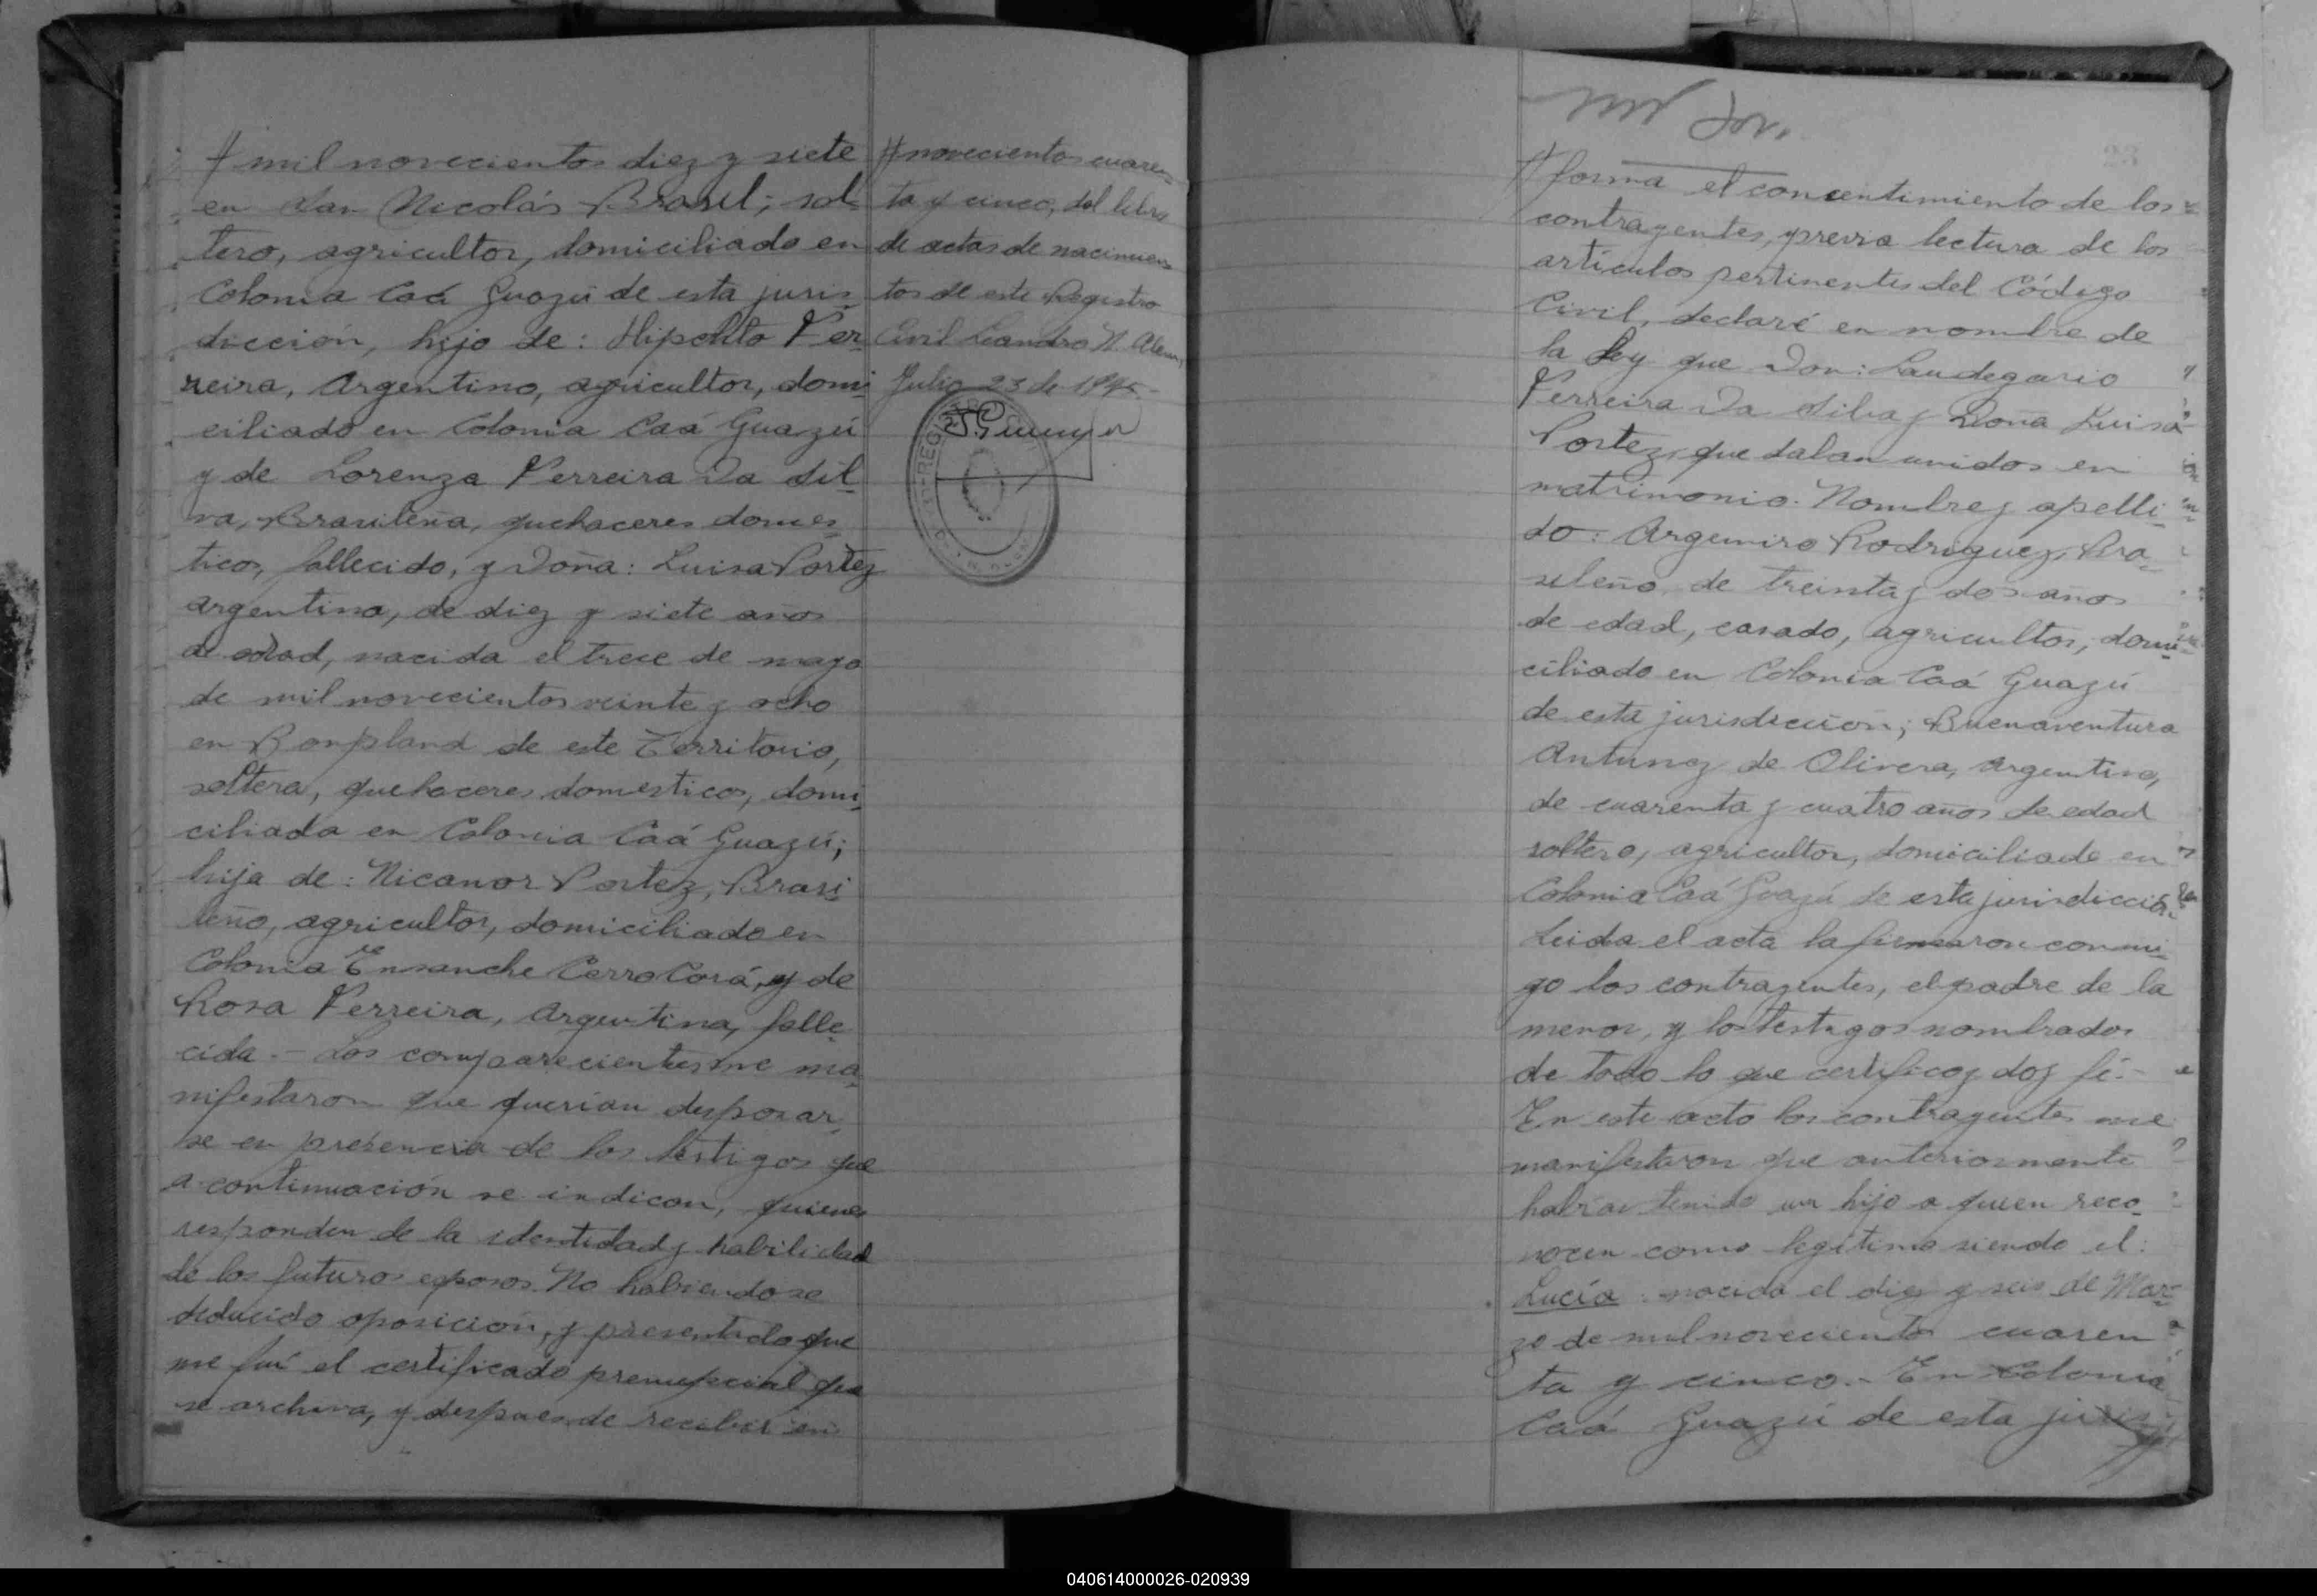 # mil novecientos diez y siete
en San Nicolás Brasil; sol-
tero, agricultor, domiciliado en
Colonia Caá Guazú de esta juris-
dicción, hijo de: Hipolito Fer-
reira, Argentino, agricultor, domi-
ciliado en Colonia Caá Guazú
y de Lorenza Ferreira Da Sil-
va, Brasileña, quehaceres domes-
ticos, fallecido, y Doña: Luisa Portez
argentina, de diez y siete años
de edad, nacida el trece de mayo
de mil novecientos veinte y ocho
en Bonpland de este Territorio,
soltera, quehaceres domesticos, domi-
ciliada en Colonia Caá Guazú;
hija de: Nicanor Portez, Brasi-
leño, agricultor, domiciliado en
Colonia Ensanche Cerro Corá, y de
Rosa Ferreira, Argentina, falle-
cida.- Los comparecientes me ma-
nifestaron que querian desposar-
se en presencia de los testigos que
a continuación se indican, quienes
responden de la identidad y habilidad
de los futuros esposos. No habiendose
deducido oposición, y presentado que
me fué el certificado prenupcial que
se archiva, y despues de recibir en
# novecientos cuaren-
ta y cinco, del libro
de actas de nacimien-
tos de este Registro
Civil Leandro N. Alem,
Julio 23 de 1945.-
REGISTRO
23
# forma el consentimiento de los
contrayentes, y previa lectura de los
articulos pertinentes del Código
Civil, declaré en nombre de
la Ley que Don: Laudegario
Ferreira Da Silva y Doña Luisa
Portez, que daban unidos en
matrimonio. Nombre y apelli-
do: Argemiro Rodriguez, Bra-
sileño, de treinta y dos años
de edad, casado, agricultor, domi-
ciliado en Colonia Caá Guazú
de esta jurisdicción; Buenaventura
Antunez de Olivera, Argentino,
de cuarenta y cuatro años de edad
soltero, agricultor, domiciliado en
Colonia Caá Guazú de esta jurisdicción.
Leida el acta la firmaron conmi-
go los contrayentes, el padre de la
menor, y los testigos nombrados
de todo lo que certifico y doy fé.-
En este acto los contrayentes me
manifestaron que anteriormente
habian tenido un hijo a quien reco-
nocen como legitimo siendo el:
Lucía: nacida el diez y seis de Mar-
zo de mil novecientos cuaren
ta y cinco.- En Colonia
Caá Guazú de esta juris-
040614000026-020939